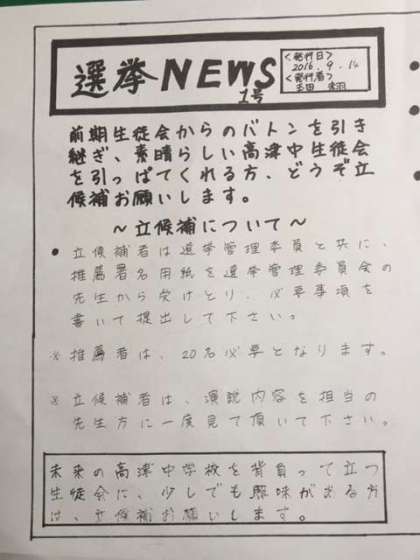 選挙NEWS
1号
<発行日>
2016.9.14
<発行者>
前期生徒会からのバトンを引き
継ぎ、素晴らしい高津中生徒会
を引っぱてくれる方、どうぞ立
候補お願いします。
～立候補について～
● 立候補者は選挙管理委員と共に、
推薦署名用紙を選挙管理委員会の
先生から受けとり、必要事項を
書いて提出して下さい。
※ 推薦者は、20名必要となります。
※ 立候補者は、演説内容を担当の
先生方に一度見て頂いて下さい。
未来の高津中学校を背負って立つ
生徒会に、少しでも興味がある方
は、立候補お願いします。